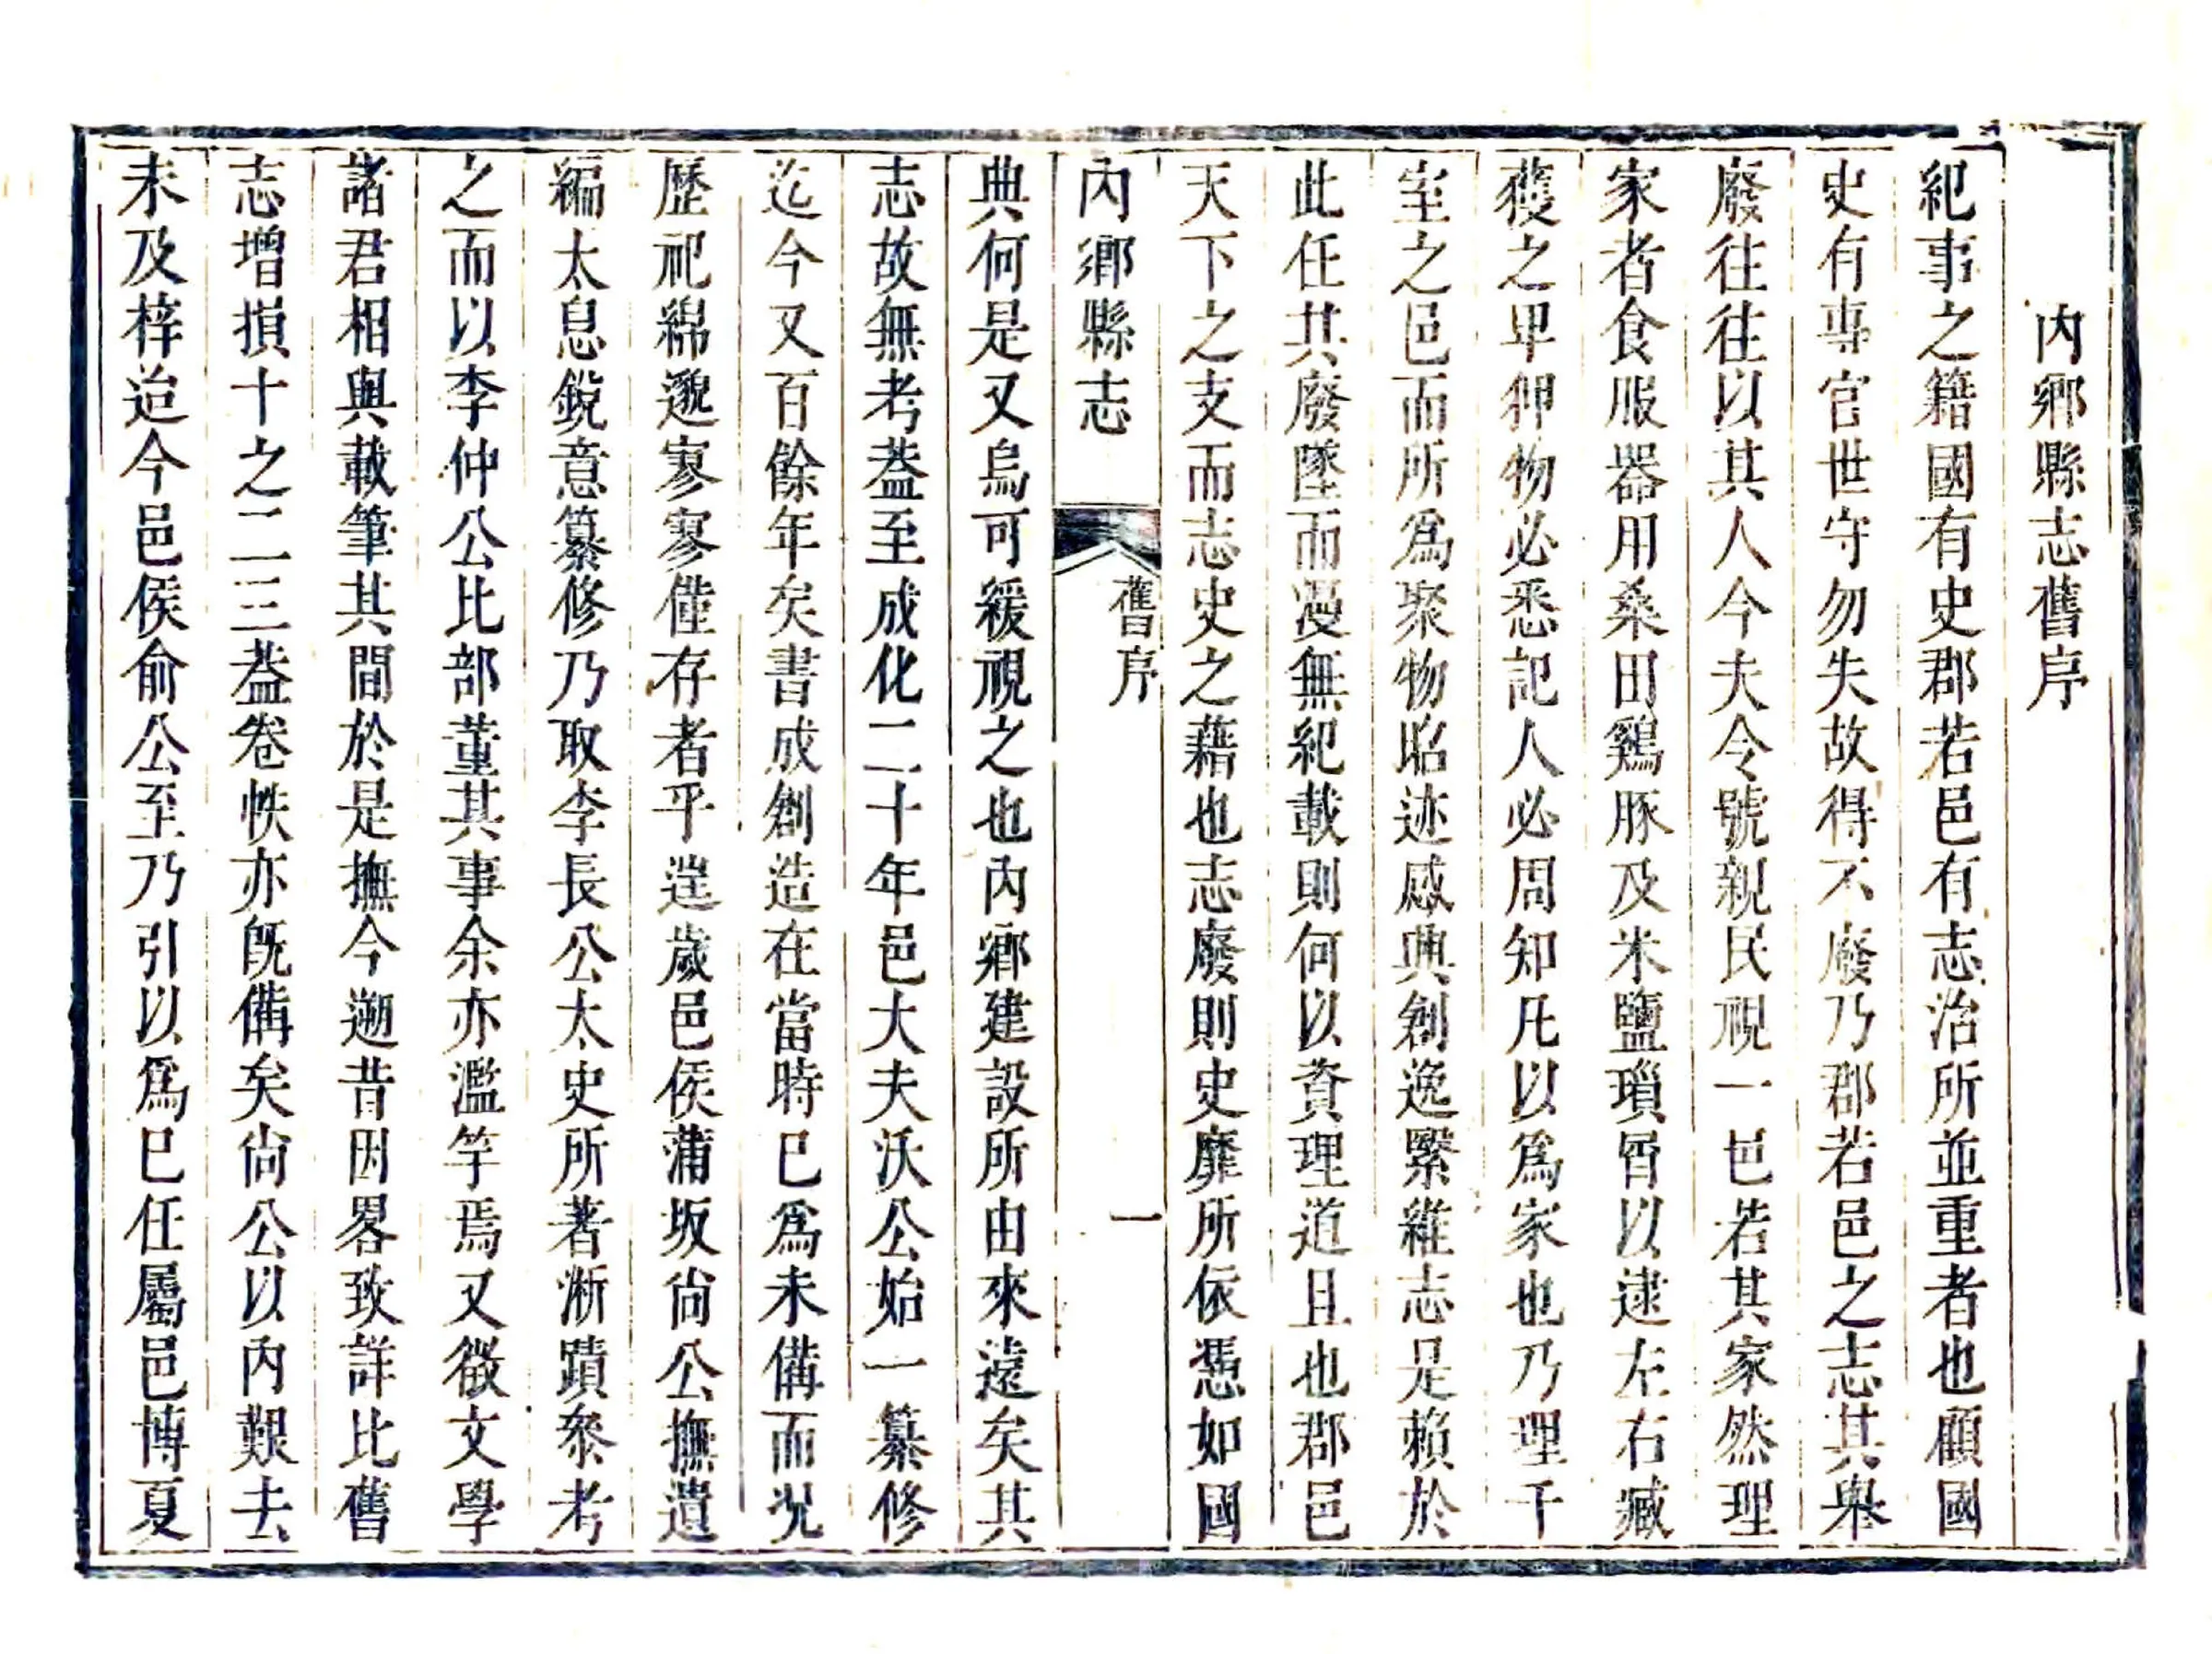 內鄉縣志舊序
紀事之籍國有史郡若邑有志治所並重者也顧國
史有專官世守勿失故得不廢乃郡若邑之志其舉
廢往往以其人今夫令號親民視一邑若其家然理
家者食服器用桑田鷄豚及米鹽瑣屑以逮左右臧
獲之卑狎物必悉記人必周知凡以爲家也乃理千
室之邑而所爲聚物昭迹感典創逸緊維志是賴於
此任其廢墜而漫無紀載則何以資理道且也郡邑
天下之支而志史之藉也志廢則史靡所依憑如國
內鄉縣志
舊序
一
典何是又烏可緩視之也內鄉建設所由來遠矣其
志故無考葢至成化二十年邑大夫沃公始一纂修
迄今又百餘年矣書成創造在當時已爲未備而况
歷祀綿邈寥寥僅存者乎逞歲邑侯蒲坂尚公撫遺
編太息銳意纂修乃取李長公太史所著淅蹟叅考
之而以李仲公比部董其事余亦濫竽焉又徵文學
諸君相與載筆其間於是撫今遡昔因畧致詳比舊
志增損十之二三葢卷帙亦旣備矣尚公以內艱去
未及梓迨今邑侯俞公至乃引以爲已任屬邑博夏